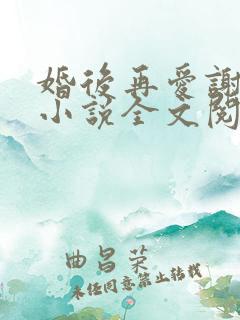 婚後再爱謝
小說全文閱
曲昌荣
未经同意禁止转载